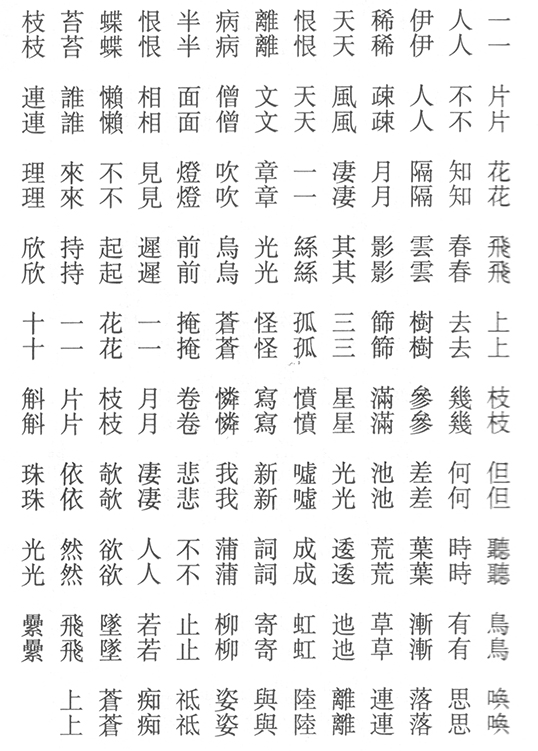 一一片片花花飛飛上上枝枝但但聽聽鳥鳥喚喚
人人不不知知春春去去幾幾何何時時有有思思
伊伊人人隔隔雲雲樹樹參參差差葉葉漸漸落落
稀稀疎疎月月影影篩篩滿滿池池荒荒草草連連
天天風風凄凄其其三三星星光光逶逶迤迤離離
恨恨天天一一絲絲孤孤憤憤噓噓成成虹虹陸陸
離離文文章章光光怪怪寫寫新新詞詞寄寄與與
病病僧僧吹吹烏烏蒼蒼憐憐我我蒲蒲柳柳姿姿
半半面面燈燈前前掩掩卷卷悲悲不不止止祗祗
恨恨相相見見遲遲一一月月凄凄人人若若痴痴
蝶蝶懶懶不不起起花花枝枝欹欹欲欲墜墜蒼蒼
苔苔誰誰來來持持一一片片依依然然飛飛上上
枝枝連連理理欣欣十十斛斛珠珠光光纍纍